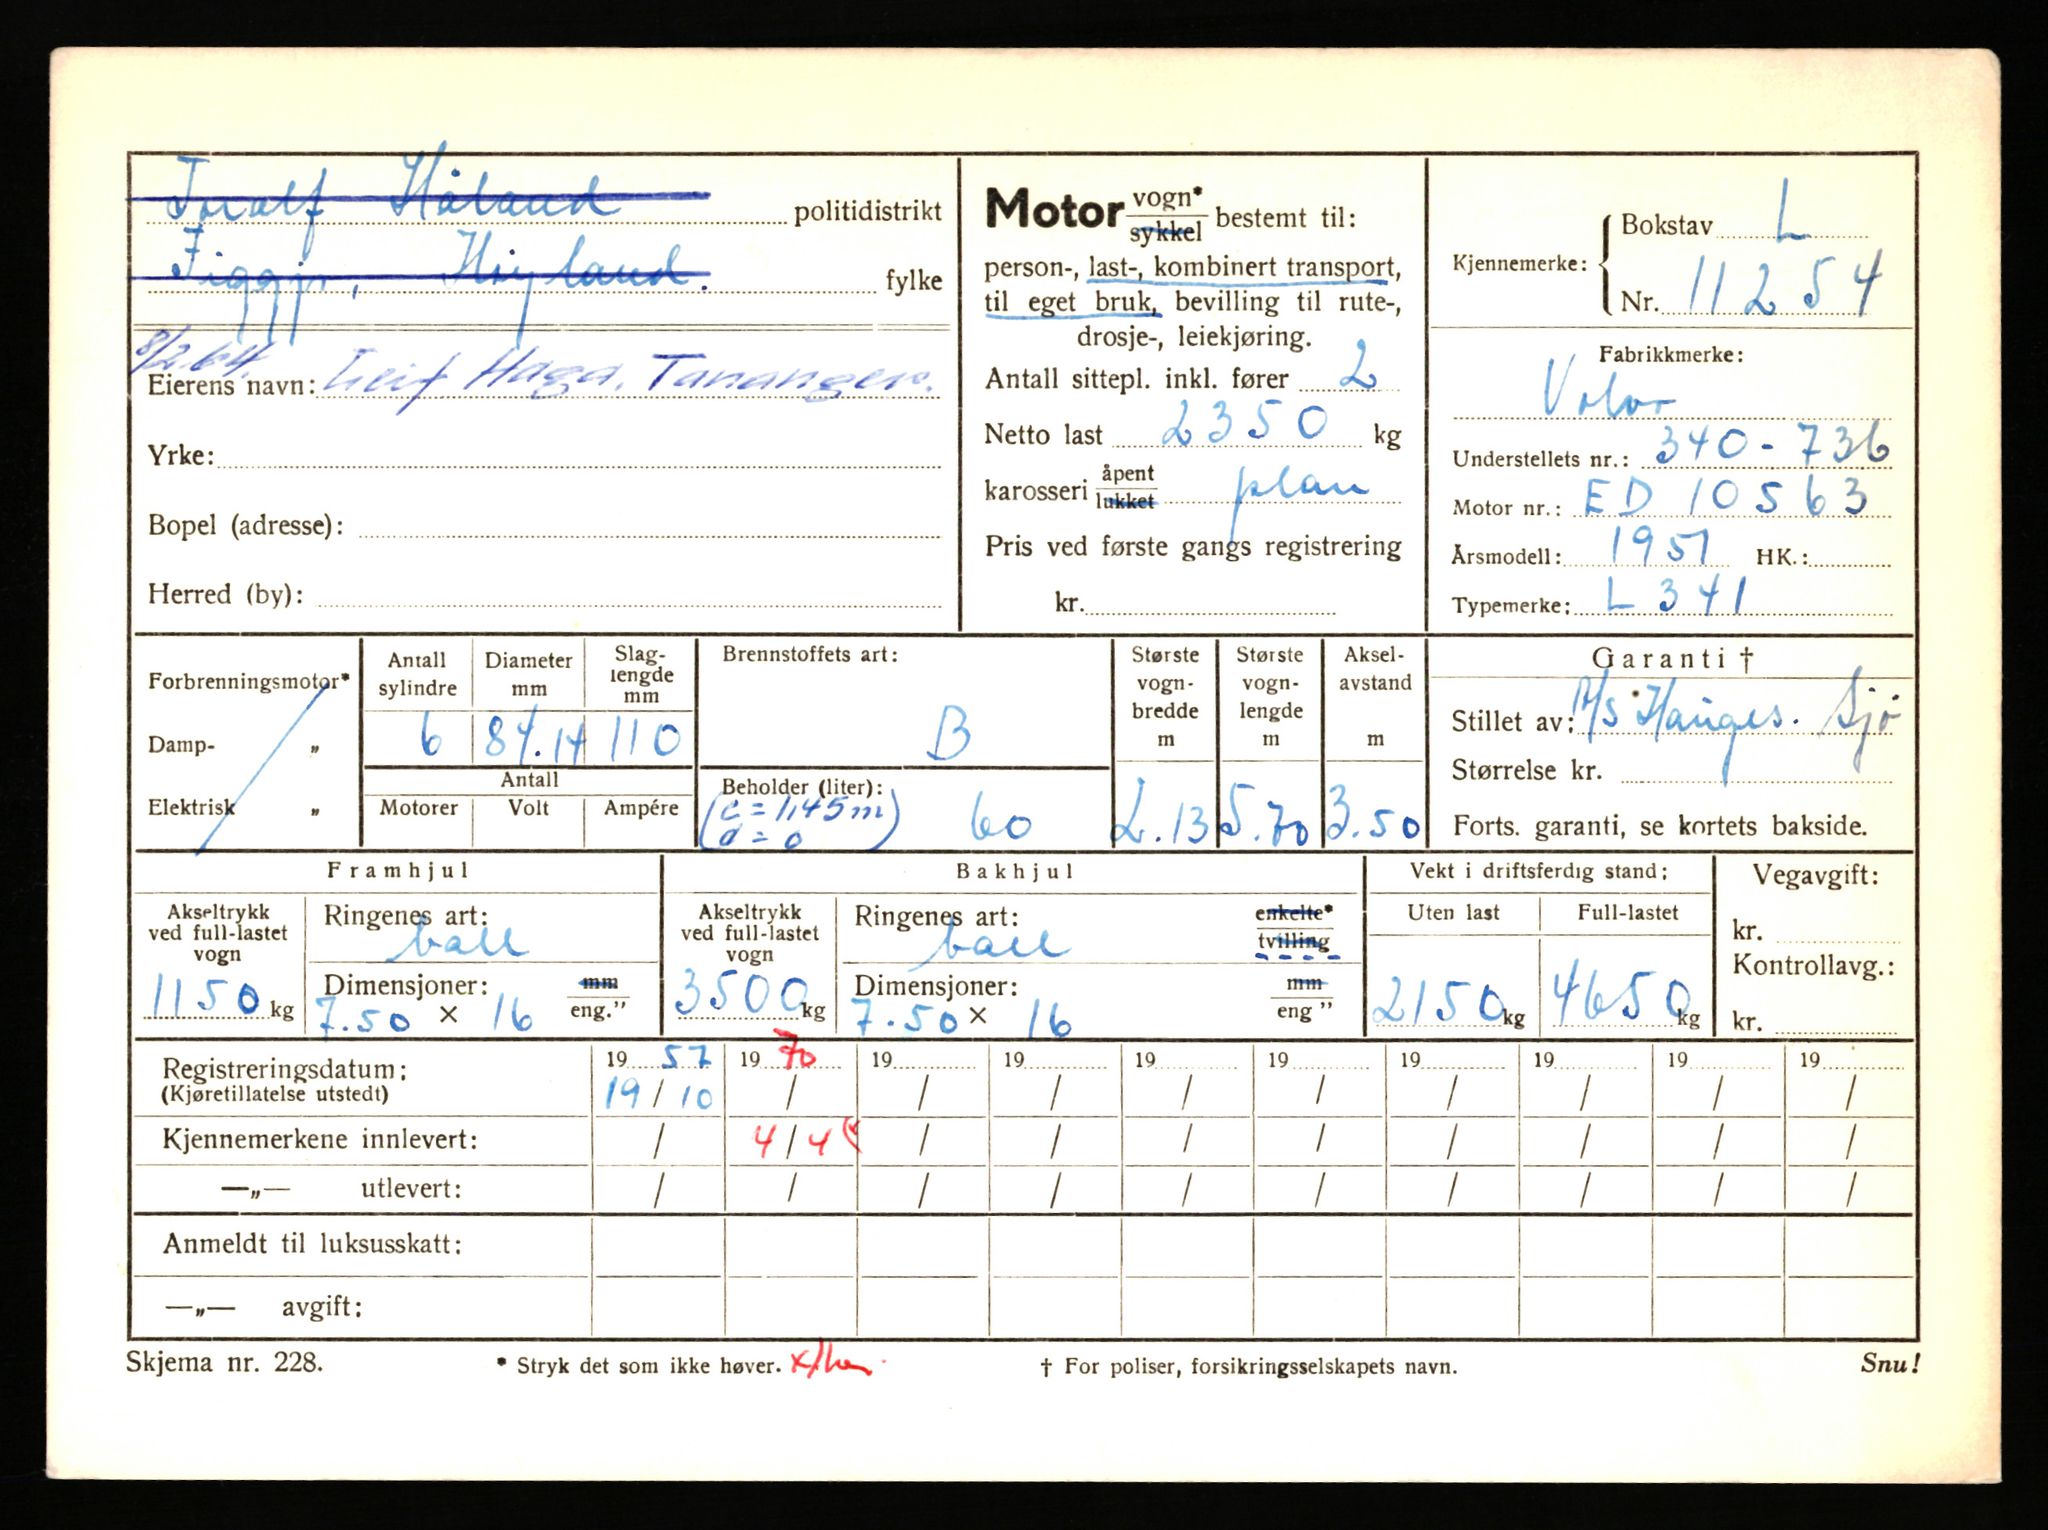 Toralf Håland politidistrikt
Figgjo, Høyland. fylke
8/2.64.
Eierens navn: Leif Haga. Tananger.
Yrke:
Bopel (adresse):
Herred (by):
Motor vogn*/sykkel bestemt til:
person-, last-, kombinert transport,
til eget bruk, bevilling til rute-,
drosje-, leiekjøring.
Antall sittepl. inkl. fører 2
Netto last 2350 kg
karosseri åpent/lukket plan
Pris ved første gangs registrering
kr.
Kjennemerke: Bokstav L
Nr. 11254
Fabrikkmerke:
Volvo
Understellets nr.: 340-736
Motor nr.: ED 10563
Årsmodell: 1951 HK.:
Typemerke: L 341
Forbrenningsmotor*
Damp- „
Elektrisk „
Antall sylindre
Diameter mm
Slag-lengde mm
6 84.14 110
Antall
Motorer Volt Ampére
Brennstoffets art:
B
Beholder (liter):
(c = 1,45 m
d = 0) 60
Største vogn-bredde m
2.13
Største vogn-lengde m
5.70
Aksel-avstand m
3.50
Garanti †
Stillet av: A/S Hauges. Sjö
Størrelse kr.
Forts. garanti, se kortets bakside.
Framhjul
Akseltrykk ved full-lastet vogn
1150 kg
Ringenes art:
ball
Dimensjoner: mm/eng."
7.50 × 16
Bakhjul
Akseltrykk ved full-lastet vogn
3500 kg
Ringenes art: enkelte*/tvilling
ball
Dimensjoner: mm/eng"
7.50 × 16
Vekt i driftsferdig stand:
Uten last Full-lastet
2150 kg 4650 kg
Vegavgift:
kr.
Kontrollavg.:
kr.
Registreringsdatum: 19 57 19 70 19 19 19 19 19 19 19 19
(Kjøretillatelse utstedt) 19/10 / / / / / / / / /
Kjennemerkene innlevert: / 4/4 (x / / / / / / / /
—„— utlevert: / / / / / / / / / /
Anmeldt til luksusskatt:
—„— avgift:
Skjema nr. 228.
* Stryk det som ikke høver.
† For poliser, forsikringsselskapets navn.
Snu!